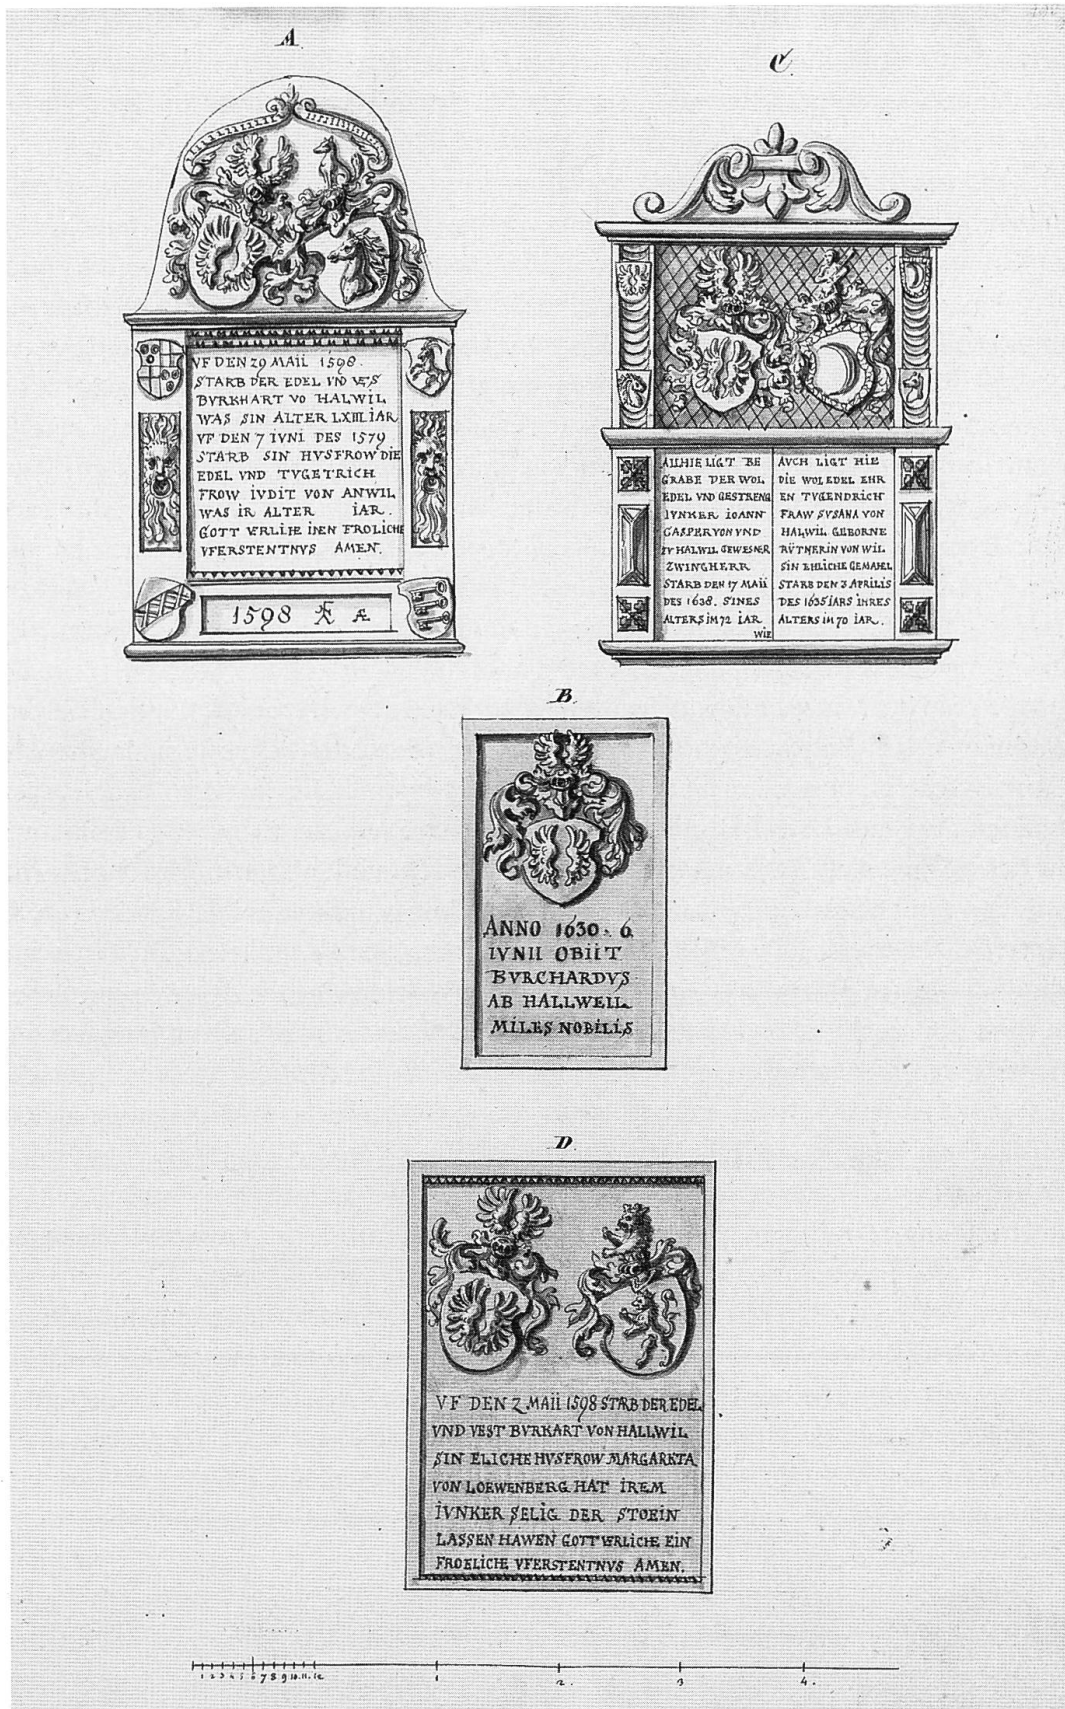 A
VF DEN 29 MAII 1598.
STARB DER EDEL VND VES
BVRKHART VO HALWIL
WAS SIN ALTER LXIII IAR
VF DEN 7 IVNI DES 1579
STARB SIN HVSFROW DIE
EDEL VND TVGETRICH
FROW IVDIT VON ANWIL
WAS IR ALTER IAR.
GOTT VERLIHE INEN FROLICHE
VFERSTENTNVS AMEN.
1598 Æ
C
ALLHIE LIGT BE
GRABE DER WOL
EDEL VND GESTRENG
IVNKER IOANN
CASPER VON VND
ZV HALWIL GEWESNER
ZWINGHERR
STARB DEN 17 MAII
DES 1638. SINES
ALTERS IM 72 IAR
WIE
AVCH LIGT HIE
DIE WOL EDEL EHR
EN TVGENDRICH
FRAW SVSANA VON
HALWIL GEBORNE
RÜTNERIN VON WIL
SIN EHLICHE GEMAHEL
STARB DEN 8 APRILIS
DES 1635 IARS IHRES
ALTERS IM 70 IAR.
B
ANNO 1630. 6
IVNII OBIIT
BVRCHARDVS
AB HALLWEIL
MILES NOBILIS
D.
VF DEN 2 MAII 1598 STARB DER EDEL
VND VEST BVRKART VON HALLWIL
SIN ELICHE HVSFROW MARGARETA
VON LOEWENBERG HAT IREM
IVNKER SELIG DER STOEIN
LASSEN HAWEN GOTT VERLICHE EIN
FROELICHE VFERSTENTNVS AMEN.
1 2 3 4 5 6 7 8 9 10. 11. 12 1 2. 3 4.